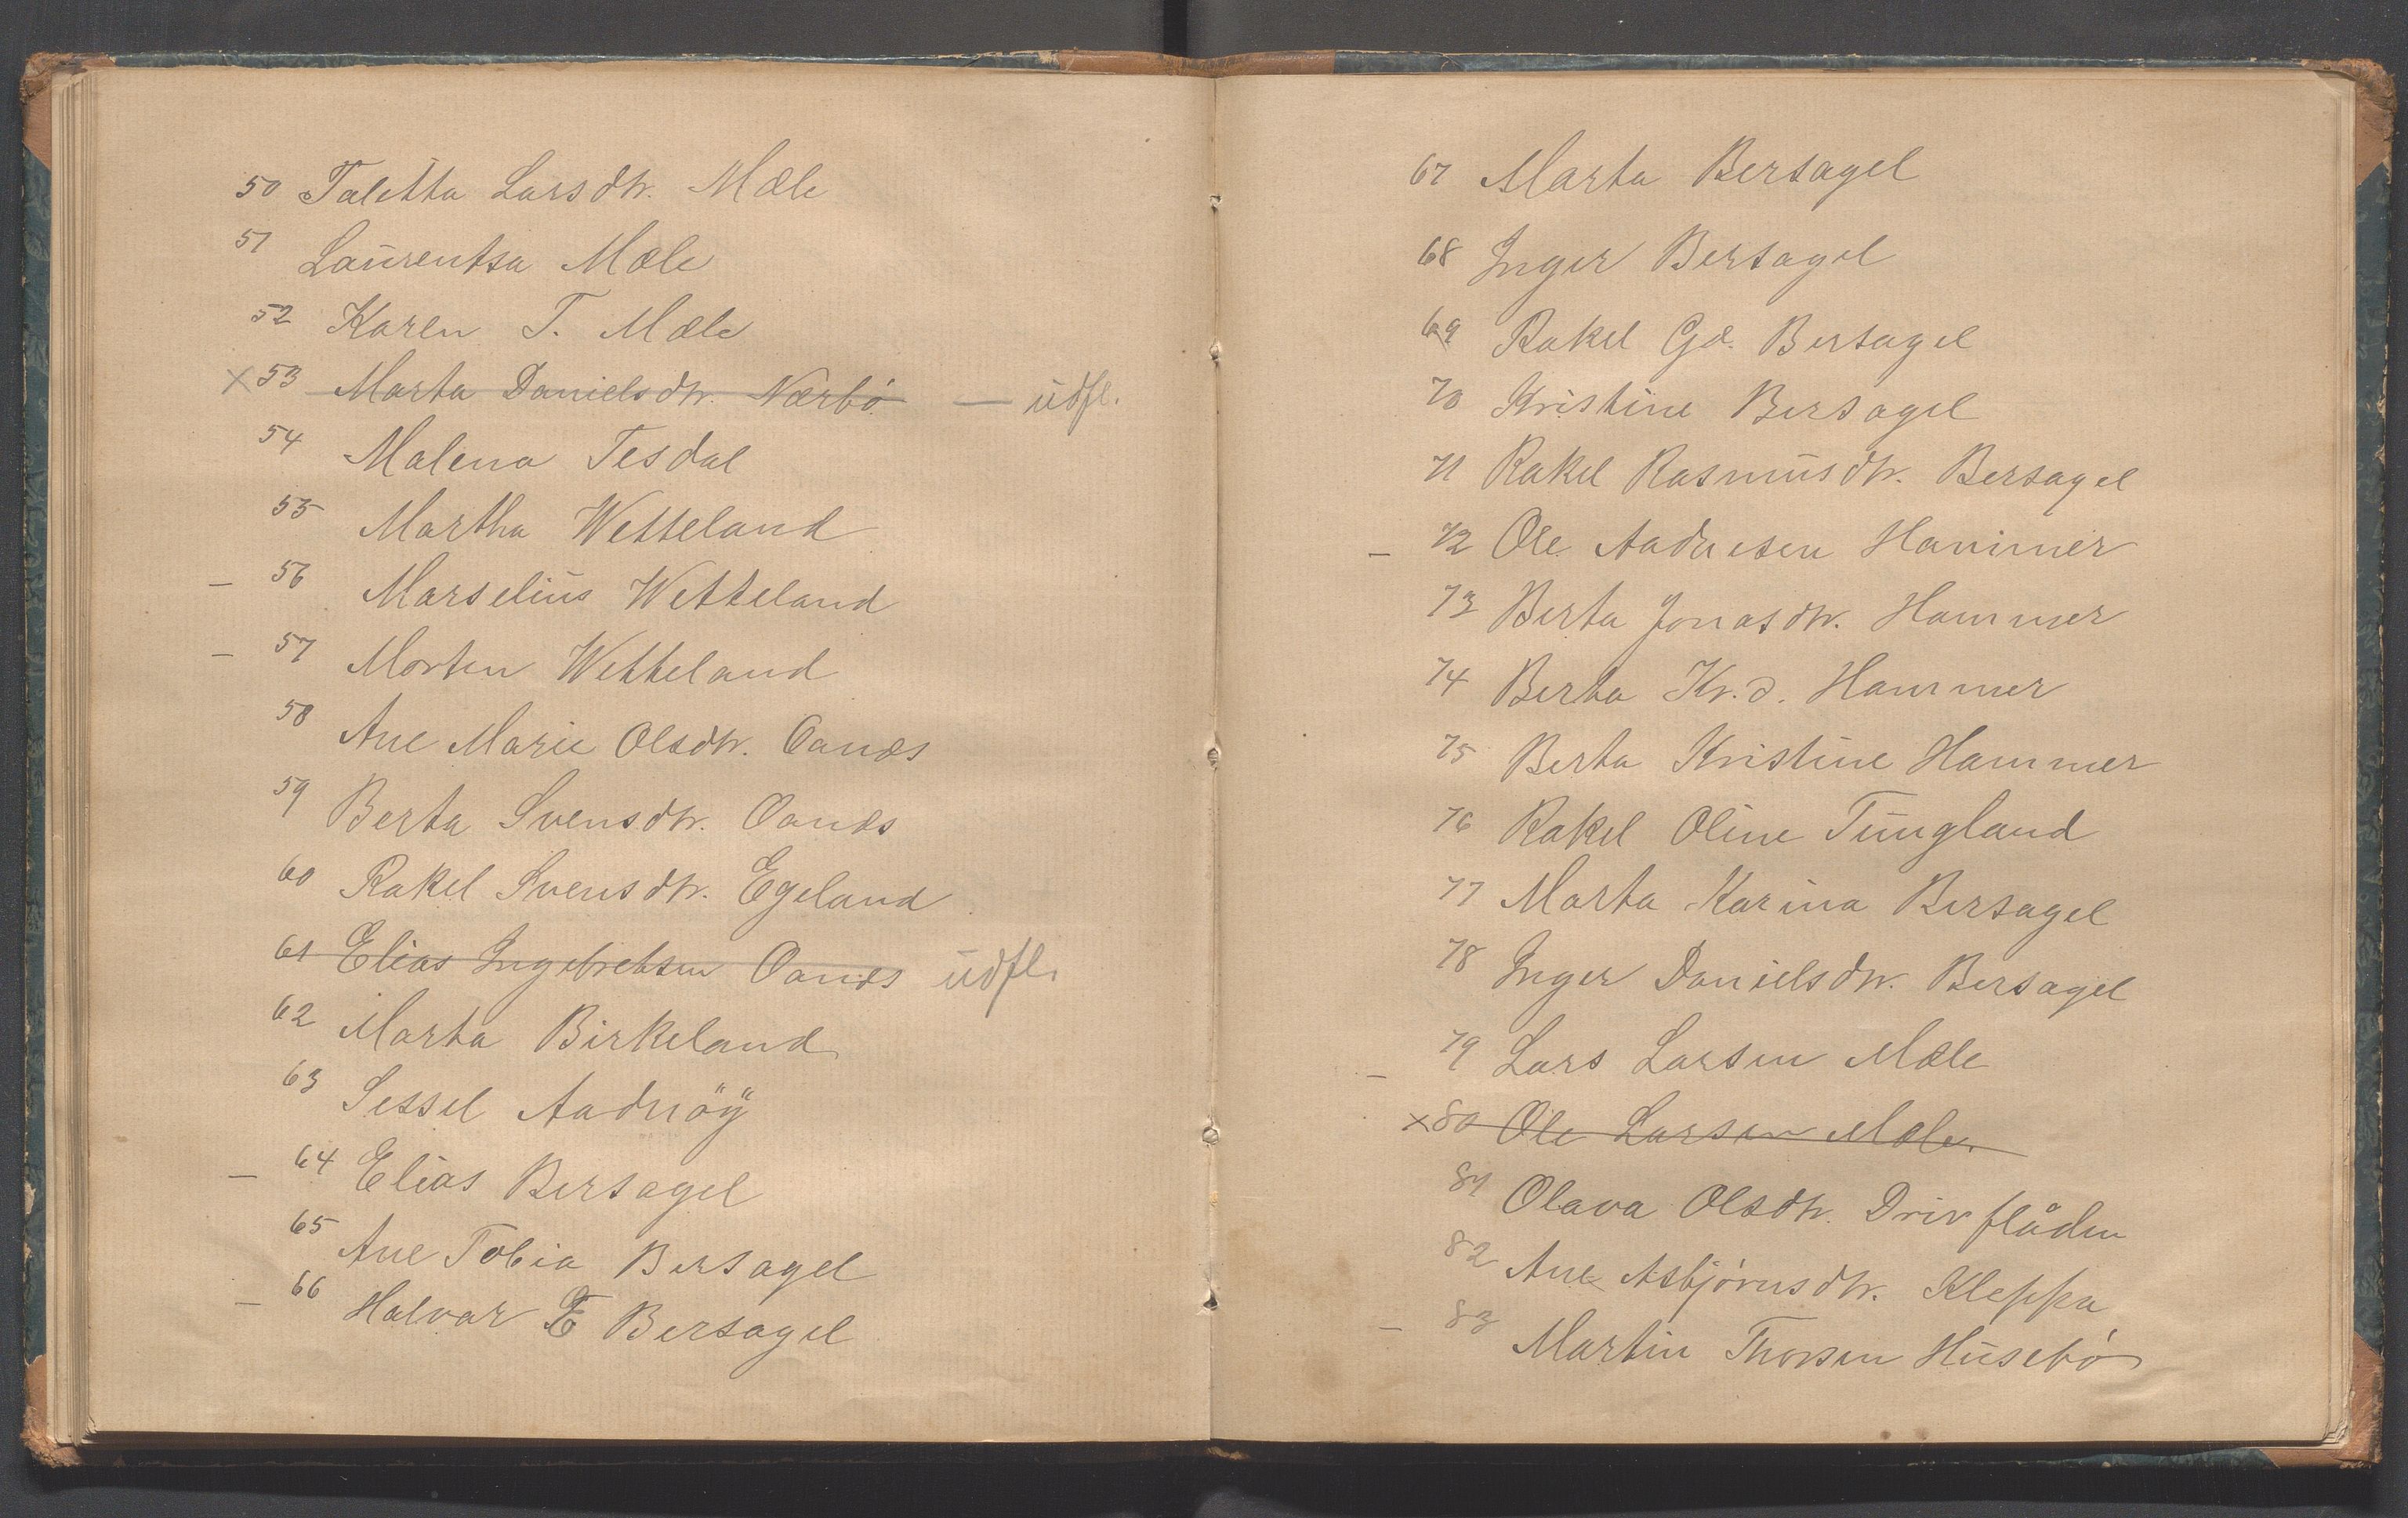 50 Taletta Larsdtr. Mæle
51 Laurentsa Mæle
52 Karen T. Mæle
x 53 Marta Danielsdtr. Nærbö — udfl.
54 Malena Tesdal
55 Martha Wetteland
– 56 Marselius Wetteland
– 57 Morten Wetteland
58 Ane Marie Olsdtr. Oanæs
59 Berta Svensdtr. Oanæs
60 Rakel Svensdtr. Egeland
61 Elias Ingebretsen Oanæs udfl.
62 Marta Birkeland
63 Sessel Aadnöÿ
– 64 Elias Bersagel
65 Ane Tobia Bersagel
– 66 Halvar E Bersagel
67 Marta Bersagel
68 Inger Bersagel
69 Rakel Gd. Bersagel
70 Kristine Bersagel
71 Rakel Rasmusdtr. Bersagel
– 72 Ole Aadnesen Hammer
73 Berta Jonasdtr. Hammer
74 Berta Kr.d. Hammer
75 Berta Kristine Hammer
76 Rakel Oline Tungland
77 Marta Karina Bersagel
78 Inger Danielsdtr. Bersagel
– 79 Lars Larsen Mæle
x 80 Ole Larsen Mæle
81 Olava Olsdtr. Drivflåden
82 Ane Asbjörnsdtr. Kleppa
– 83 Martin Thorsen Husebö